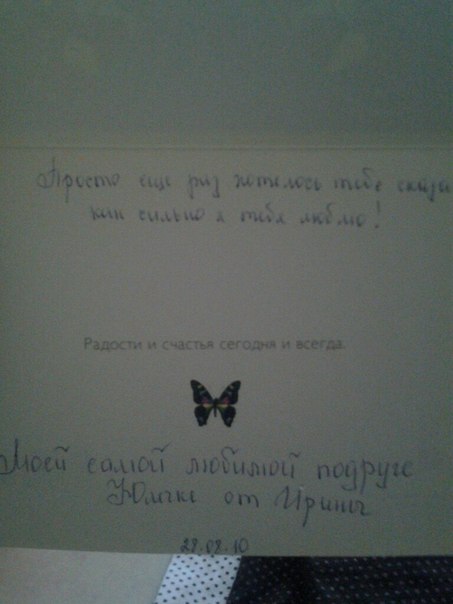 Просто еще раз хотелось тебе сказа
как сильно я тебя люблю!
Радости и счастья сегодня и всегда.
Моей самой любимой подруге
Юльчке от Ирины
28.08.10